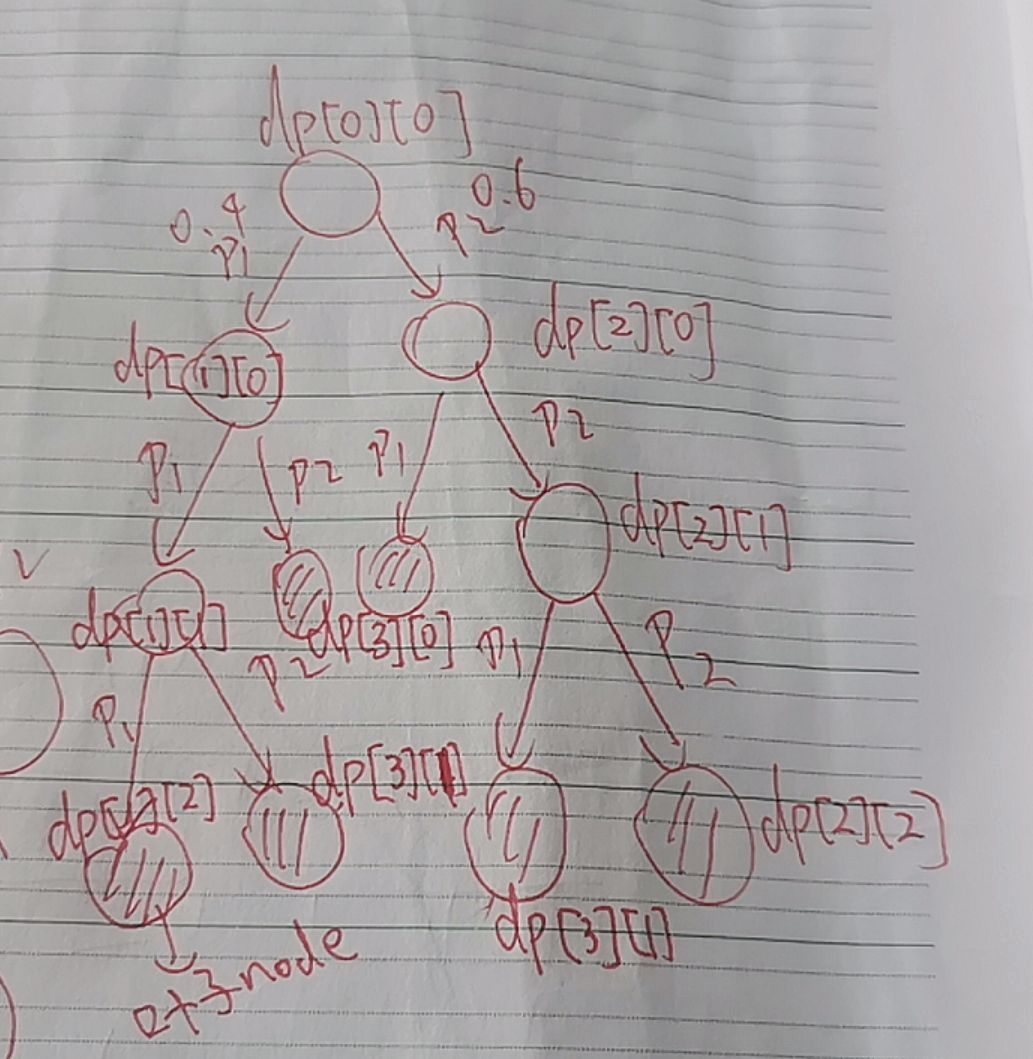 dp[0][0]
0.4
0.6
P1
P2
dp[1][0]
dp[2][0]
P1
P2
P1
P2
dp[2][1]
V
dp[1][1]
dp[3][0]
P1
P2
P1
P2
dp[1][2]
dp[3][1]
dp[2][2]
dp[3][1]
node